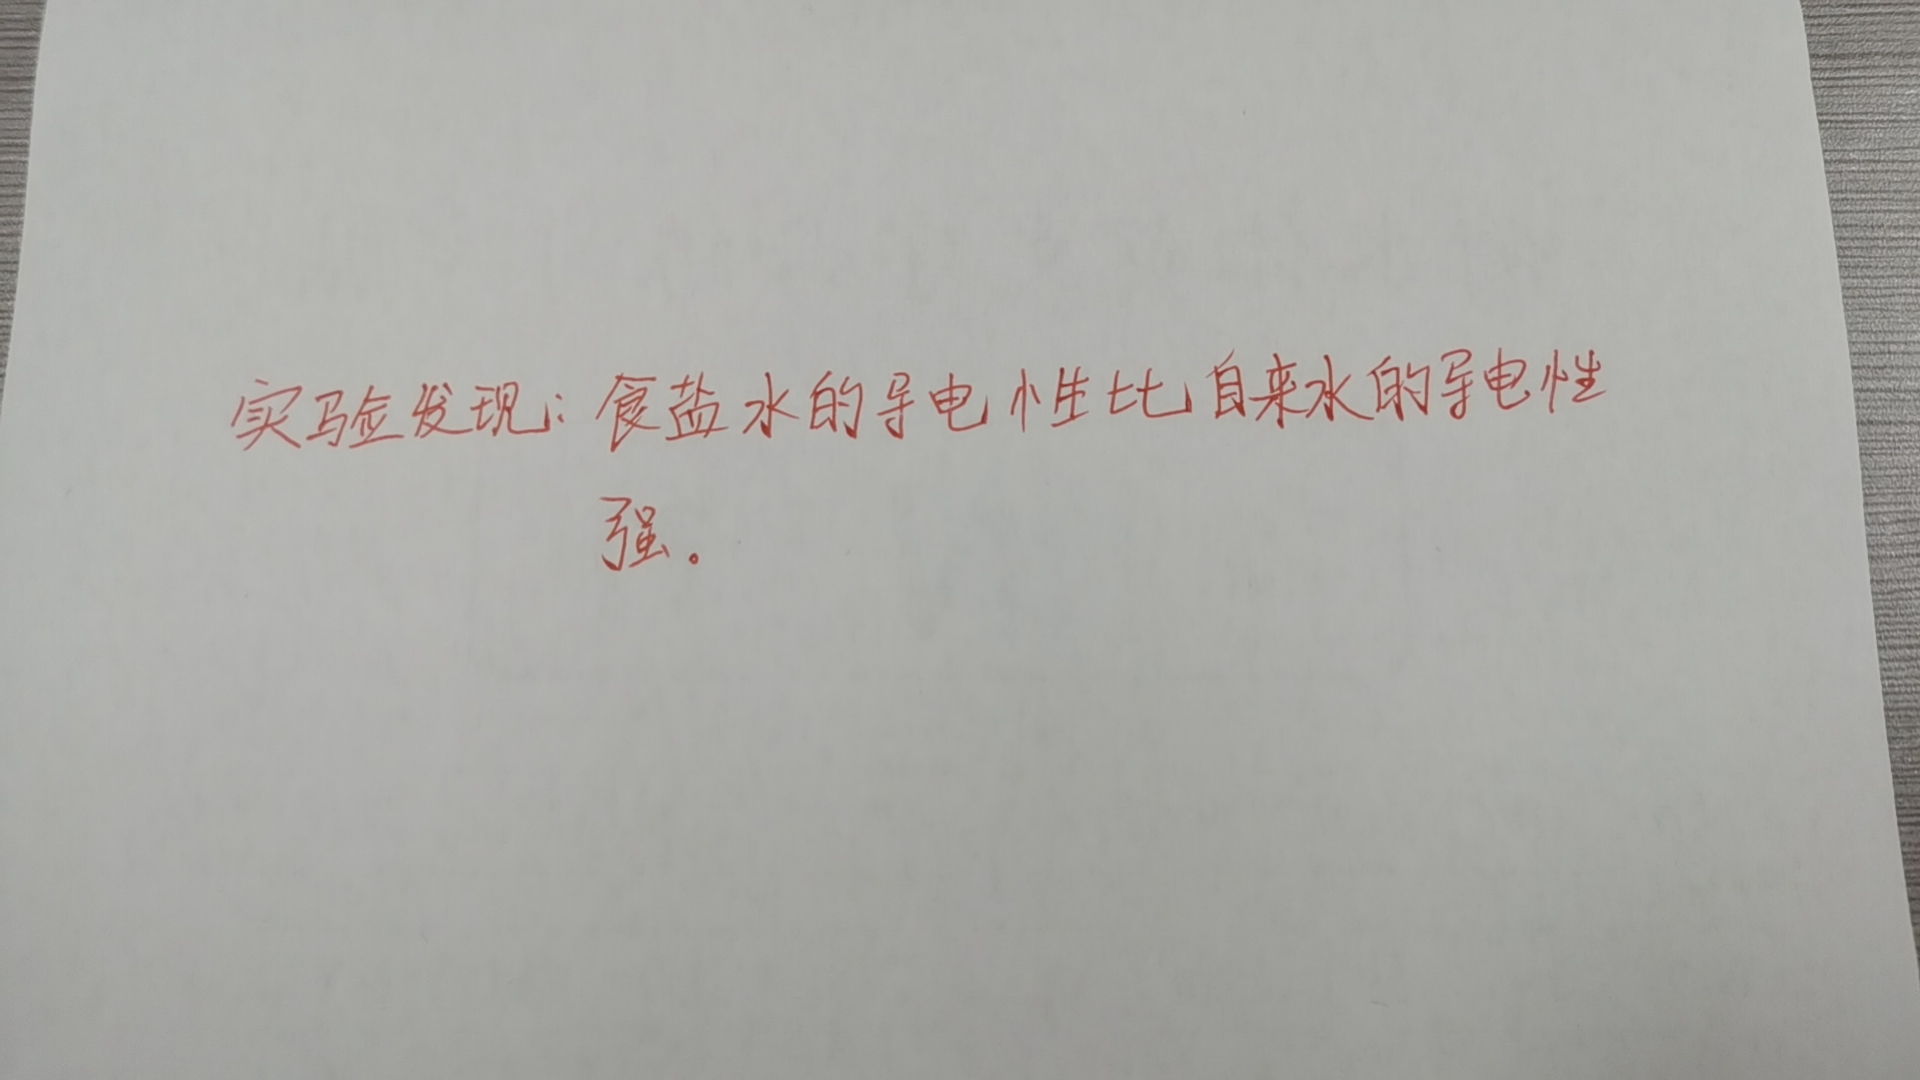 实验发现：食盐水的导电性比自来水的导电性
强。